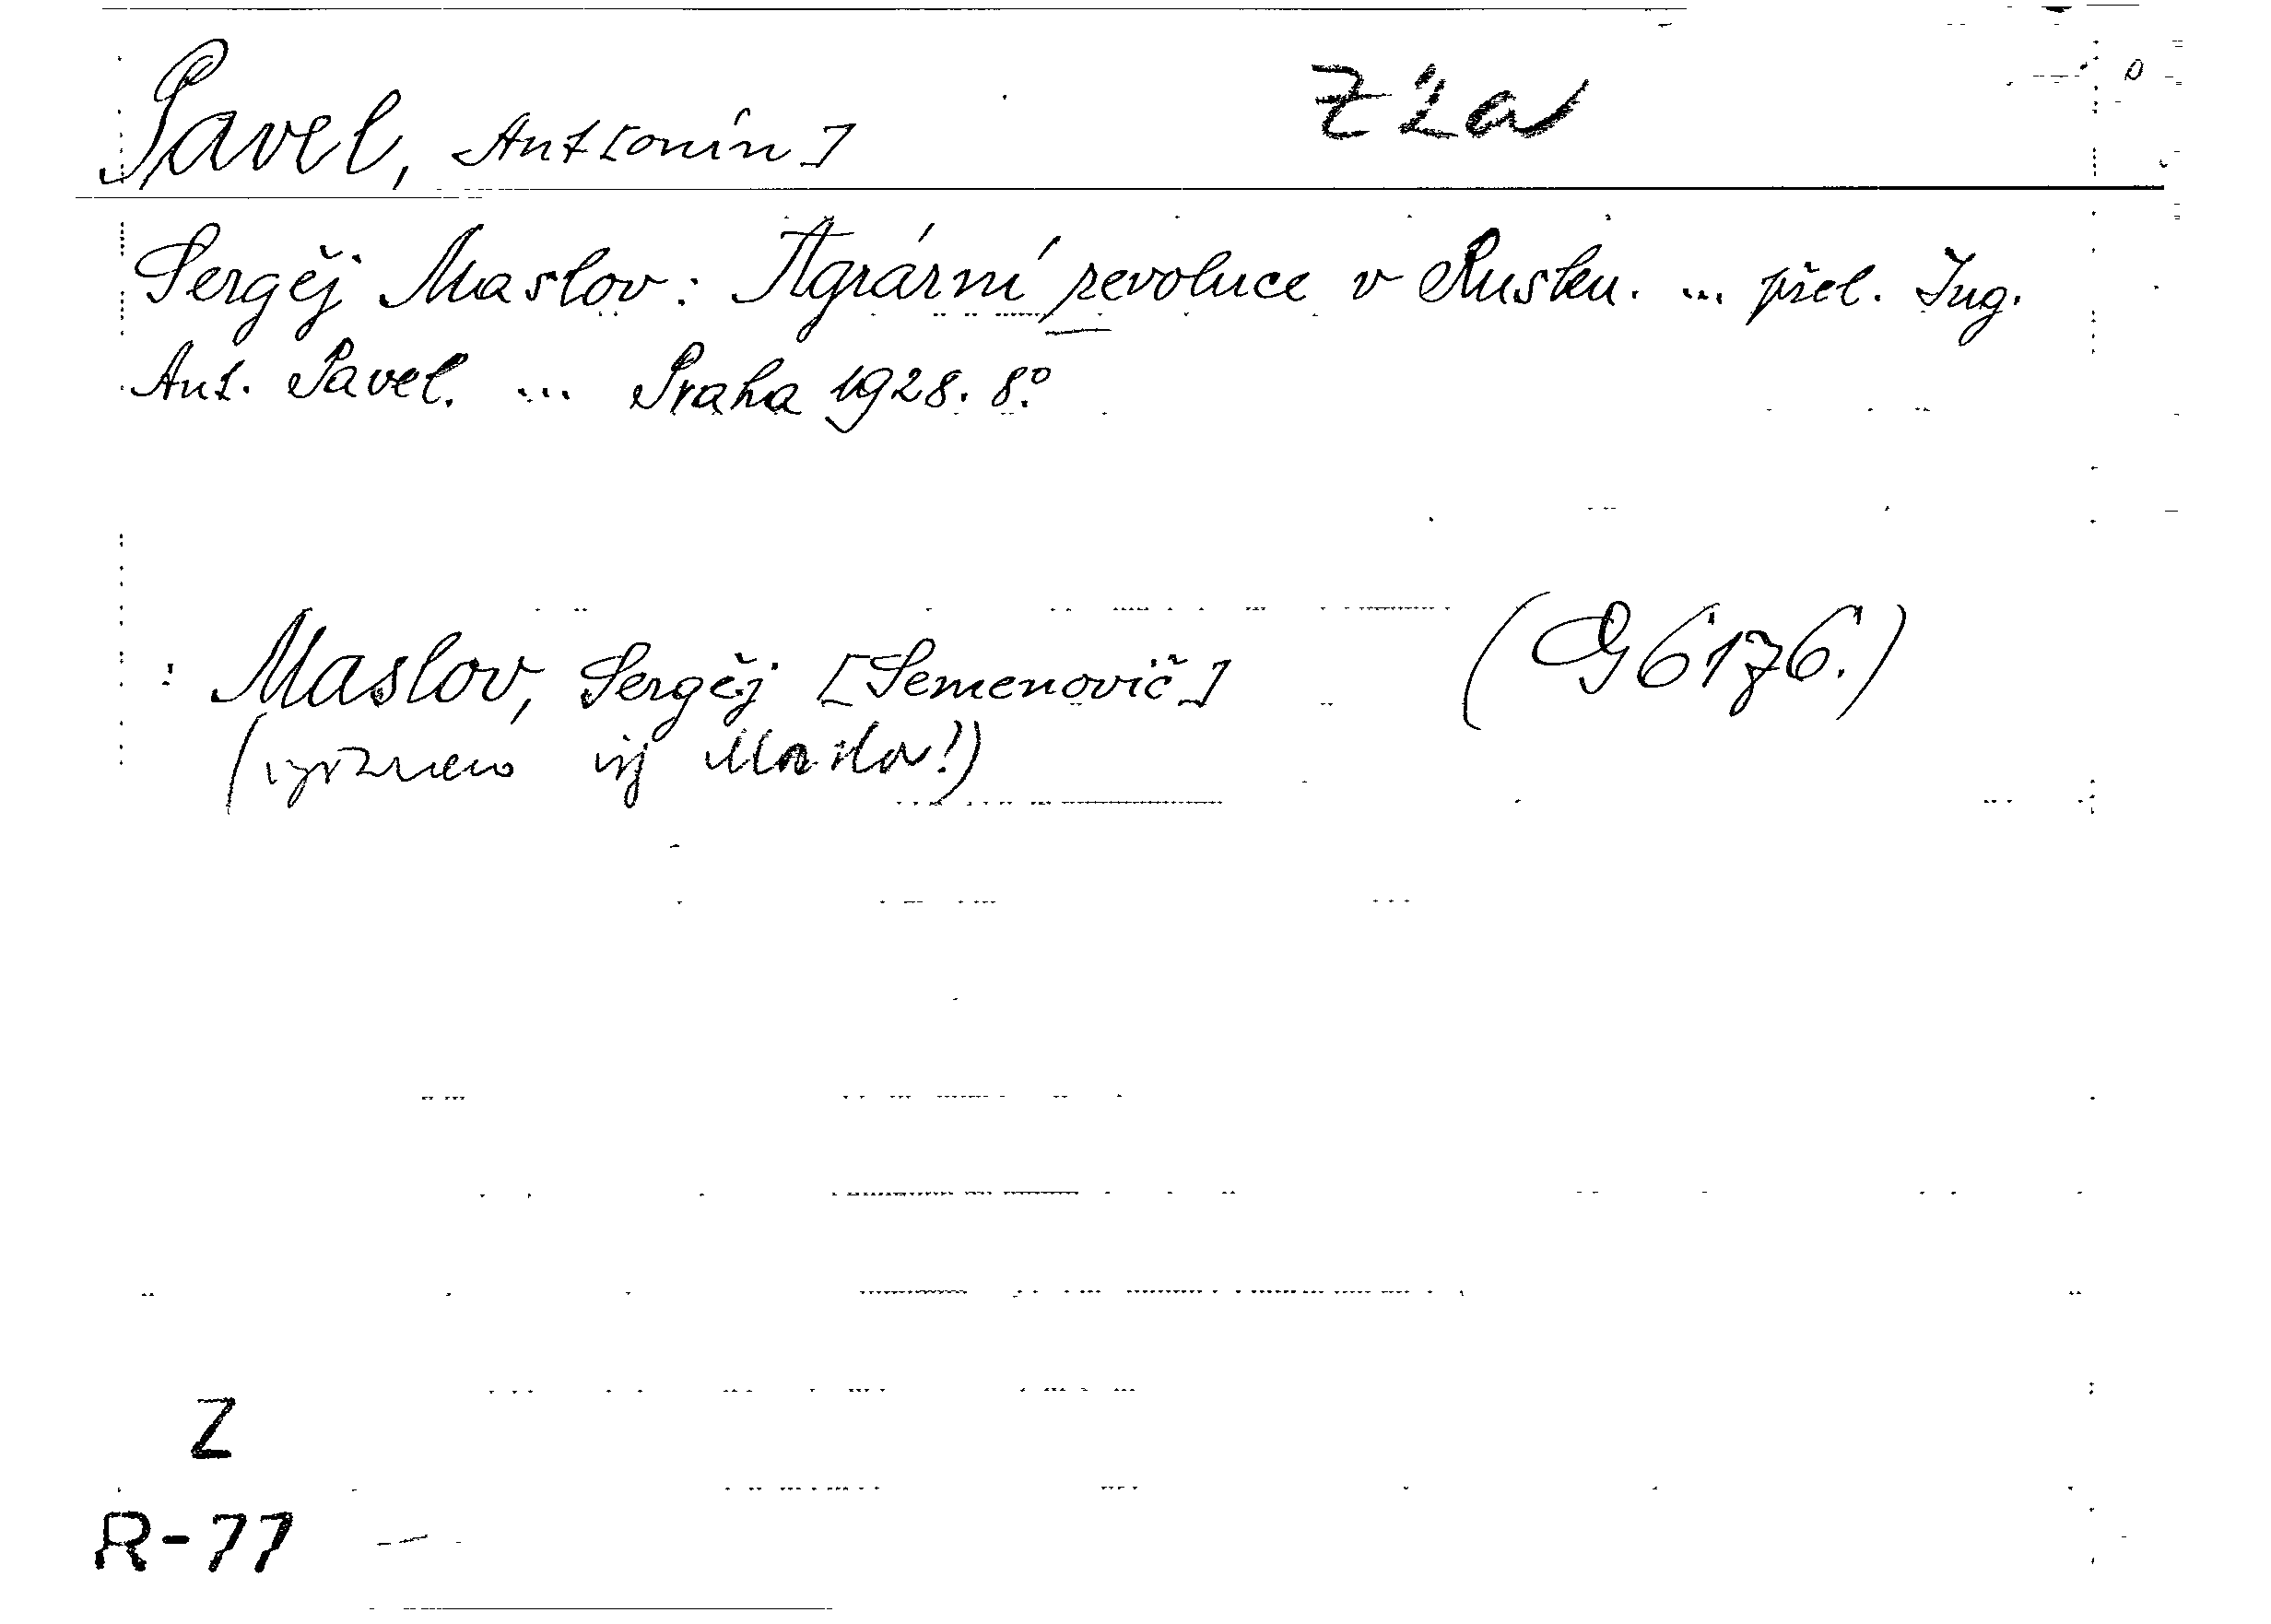 Pavel, Ant[onín] Z 2a
Sergěj Maslov: Agrární revoluce v Rusku. ... přel. Ing.
Ant. Pavel. ... Praha 1928. 8°.
: Maslov, Sergěj [Semenovič] (G 6176.)
Z
R-77